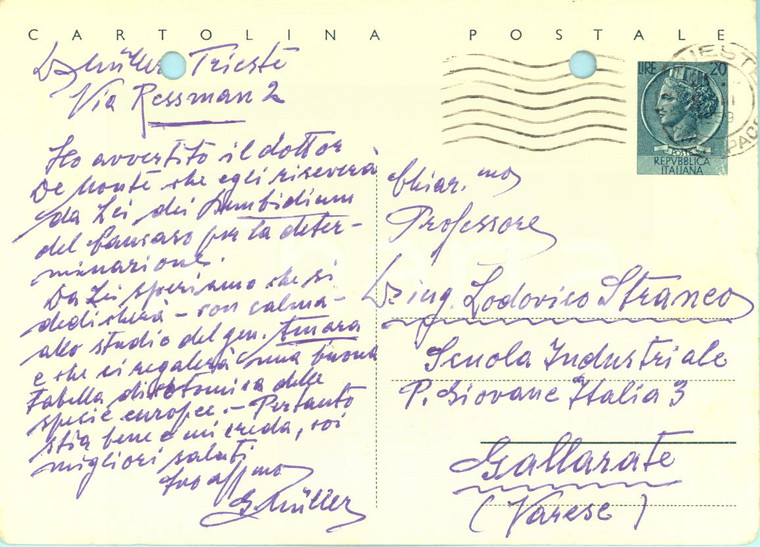 CARTOLINA POSTALE
G. Müller Trieste
Via Ressman 2
Ho avvertito il dottor
De Monte che egli riceverà
da Lei dei Bembidium
del Caucaso per la deter-
minazione.
Da Lei speriamo che si
dedicherà - con calma -
allo studio del gen. Amara
e che ci regalerà una buona
Tabella dicotomica delle
specie europee. - Pertanto
stia bene e mi creda, coi
migliori saluti
Suo aff.mo
G. Müller
LIRE 20
POSTE
REPVBBLICA
ITALIANA
TRIESTE
Chiar.mo
Professore
Dr ing. Lodovico Straneo
Scuola Industriale
P. Giovane Italia 3
Gallarate
(Varese)